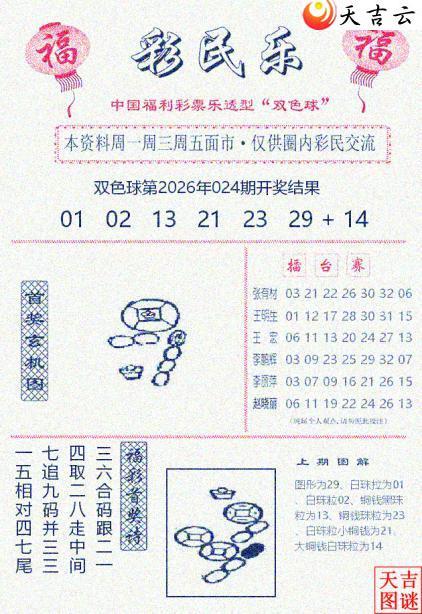 天吉云
福
彩民乐
福
中国福利彩票乐透型“双色球”
本资料周一周三周五面市·仅供圈内彩民交流
双色球第2026年024期开奖结果
01 02 13 21 23 29 + 14
首奖玄机图
擂台赛
张有材 03 21 22 26 30 32 06
王明生 01 12 17 28 30 31 15
王宏 06 11 13 20 24 27 13
李鹏辉 03 09 23 25 29 32 07
李丽萍 03 07 09 16 21 26 15
赵晓丽 06 11 19 22 24 26 13
(纯属个人观点,请勿照此投注)
福彩首奖诗
三六合码跟二一
四取二八走中间
七追九码并三三
一五相对四七尾
上期图解
图形为29、白珠拉为01
、白珠粒02、铜钱黑珠
粒为13、铜钱珠粒为23
、白珠粒小铜钱为21、
大铜钱白珠粒为14
天吉
图谜